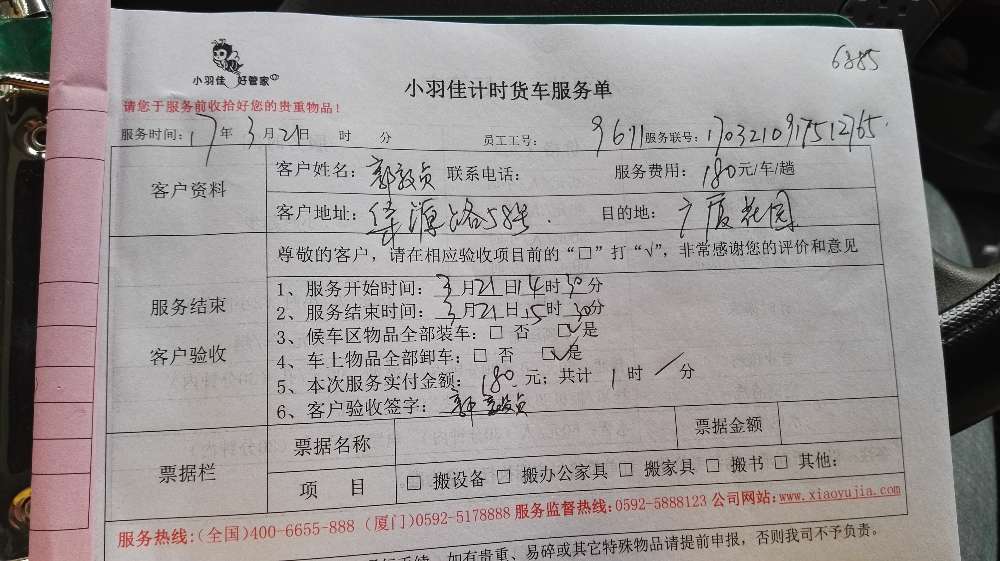 6885
小羽佳 好管家
小羽佳计时货车服务单
请您于服务前收拾好您的贵重物品！
服务时间：17年3月21日 时 分 员工工号： 9611 服务联号：1703210917512765
客户资料
客户姓名：郭毅贞 联系电话： 服务费用：180元/车/趟
客户地址： 源路58号 目的地：广厦花园
尊敬的客户，请在相应验收项目前的“□”打“√”，非常感谢您的评价和意见
服务结束
客户验收
1、服务开始时间：3月21日14时30分
2、服务结束时间：3月21日15时30分
3、候车区物品全部装车：□ 否 ☑是
4、车上物品全部卸车：□ 否 ☑是
5、本次服务实付金额：180元；共计 1时 / 分
6、客户验收签字：郭毅贞
票据栏
票据名称 票据金额
项 目 □ 搬设备 □ 搬办公家具 □ 搬家具 □ 搬书 □ 其他：
服务热线：（全国）400-6655-888（厦门）0592-5178888 服务监督热线：0592-5888123 公司网站：www.xiaoyujia.com
如有贵重、易碎或其它特殊物品请提前申报，否则我司不予负责。